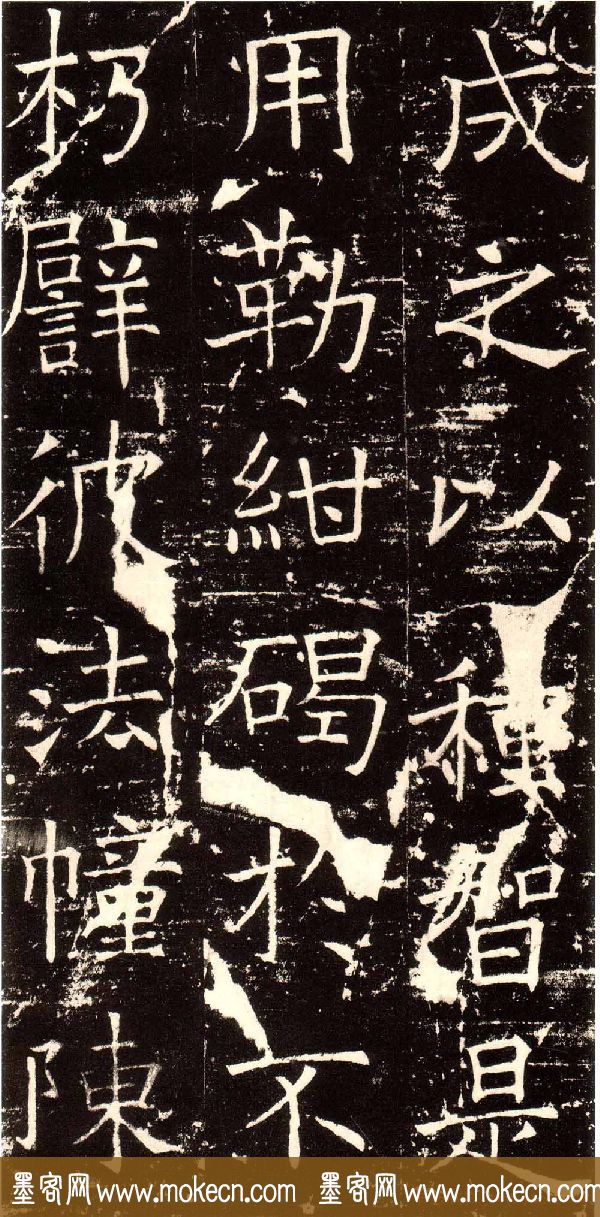 成之以種智是
用勒紺碣於不
朽譬彼法幢陳
墨客网 www.mokecn.com 墨客网 www.mokecn.com